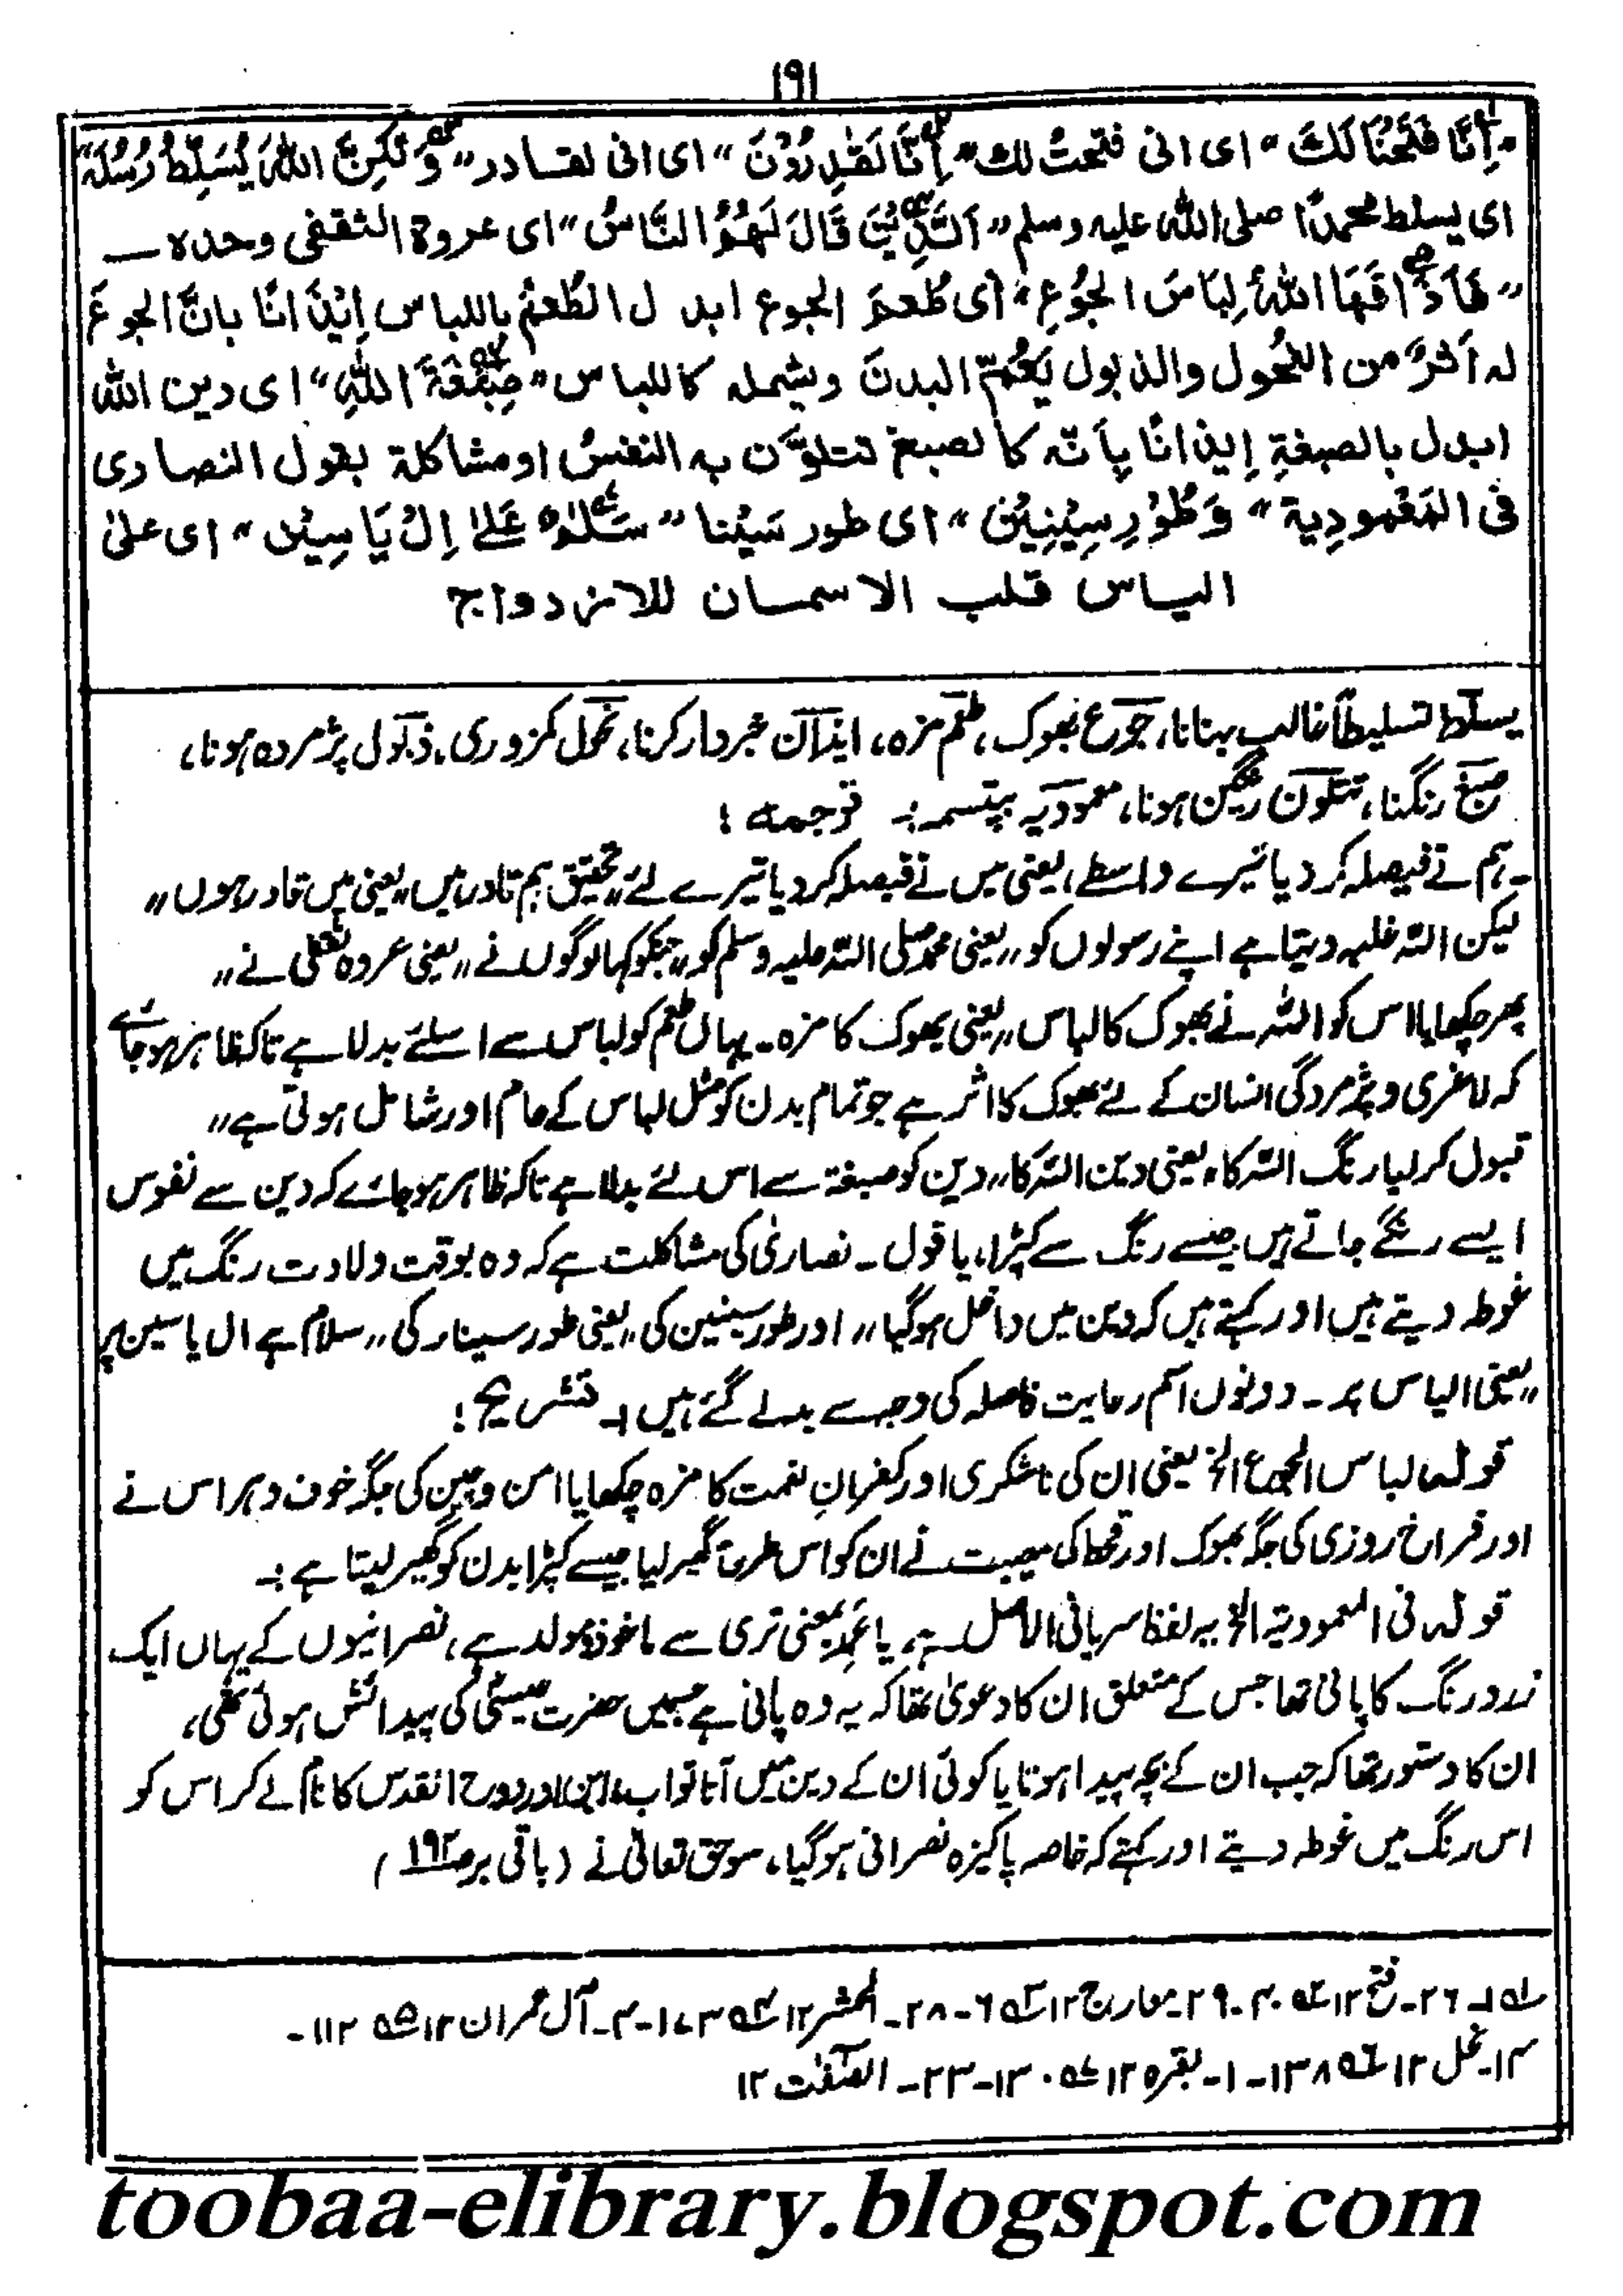 ۱۹۱
"إِنَّا فَتَحْنَا لَكَ" ای انی فتحتُ لك "إِنَّا لَقٰدِرُوْنَ" ای انی لقادر "وَلٰكِنَّ اللّٰهَ يُسَلِّطُ رُسُلَهٗ"
ای یسلط محمدًا صلی الله علیه وسلم "اَلَّذِيْنَ قَالَ لَهُمُ النَّاسُ" ای عروة الثقفی وحده —
"فَأَذَاقَهَا اللّٰهُ لِبَاسَ الْجُوْعِ" ای طُعمَ الجوع ابدل الطُعمُ باللباس اِیْذَانًا بانَّ الجوعَ
له أثرٌ من النُّحول والذبول یَعُمُّ البدنَ ویشمله کاللباس "صِبْغَةَ اللّٰهِ" ای دین الله
ابدل بالصبغةِ اِیذانًا بِأنّه کالصبغ تتلوَّن به النفسُ او مشاکلة بقول النصاری
فی المَعْمودِیة "وَطُوْرِ سِيْنِيْنَ" ای طور سَیْنا "سَلٰمٌ عَلٰى اِلْ يَاسِيْنَ" ای علیٰ
الیاس قلب الاسمان للازدواج
یسلّط تسلیطاً غالب بنانا، جوع بھوک، طعم مزہ، ایذان خبردار کرنا، نحول کمزوری، ذبول پژمردہ ہونا،
صبغ رنگنا، تتلون رنگین ہونا، معمودیہ بپتسمہ :۔ ترجمہ :
۔ ہم نے فیصلہ کر دیا تیرے واسطے، یعنی میں نے فیصلہ کر دیا تیرے لئے "تحقیق ہم قادر ہیں" یعنی میں قادر ہوں "
لیکن اللہ غلبہ دیتا ہے اپنے رسولوں کو" یعنی محمد صلی اللہ علیہ وسلم کو "جنکو کہا لوگوں نے" یعنی عروہ ثقفی نے "
پھر چکھایا اس کو اللہ نے بھوک کا لباس" یعنی بھوک کا مزہ ۔ یہاں طعم کو لباس سے اسلئے بدلا ہے تاکہ ظاہر ہو جائے
کہ لاغری و پژمردگی انسان کے لئے بھوک کا اثر ہے جو تمام بدن کو مثل لباس کے عام اور شامل ہوتی ہے "
قبول کر لیا رنگ اللہ کا" یعنی دین اللہ کا" دین کو صبغۃ سے اس لئے بدلا ہے تاکہ ظاہر ہو جائے کہ دین سے نفوس
ایسے رنگے جاتے ہیں جیسے رنگ سے کپڑا، یا قول ۔ نصاریٰ کی مشاکلت ہے کہ وہ بوقت ولادت رنگ میں
غوطہ دیتے ہیں اور کہتے ہیں کہ دین میں داخل ہو گیا" اور طور سینین کی" یعنی طور سینار کی" سلام ہے ال یاسین پر
" یعنی الیاس پر ۔ دونوں اسم رعایت فاصلہ کی وجہ سے بدلے گئے ہیں :۔ تشریح :
قولہ لباس الجوع الخ یعنی ان کی ناشکری اور کفرانِ نعمت کا مزہ چکھایا امن و چین کی جگہ خوف و ہراس نے
اور فراخ روزی کی جگہ بھوک اور قحط کی مصیبت نے ان کو اس طرح گھیر لیا جیسے کپڑا بدن کو گھیر لیتا ہے :۔
قولہ فی المعمودیۃ الخ یہ لفظ سریانی الاصل ہے، یا عَمد بمعنی تری سے ماخوذ مولد ہے، نصرانیوں کے یہاں ایک
زرد رنگ کا پانی تھا جس کے متعلق ان کا دعویٰ تھا کہ یہ وہ پانی ہے جسمیں حضرت عیسیٰؑ کی پیدائش ہوئی تھی،
ان کا دستور تھا کہ جب ان کے بچہ پیدا ہوتا یا کوئی ان کے دین میں آتا تو اب، ابن اور روح القدس کا نام لے کر اس کو
اس رنگ میں غوطہ دیتے اور کہتے کہ خاصہ پاکیزہ نصرانی ہو گیا، سو حق تعالیٰ نے (باقی بر صـ ۱۹۲)
لہ ۱۔ ۲۶۔ فتح ۱۲ ۲ہ ۴۰۔ ۲۹۔ معارج ۱۲ ۳ہ ۶۔ ۲۸۔ الحشر ۱۲ ۴ہ ۱۷۳۔ ۴۔ آل عمران ۱۲ ۵ہ ۱۱۲۔
۱۴۔ نحل ۱۲ ۶ہ ۱۳۸۔ ۱۔ بقرہ ۱۲ ۷ہ ۱۳۰۔ ۲۳۔ الصّٰفّٰت ۱۲
toobaa-elibrary.blogspot.com